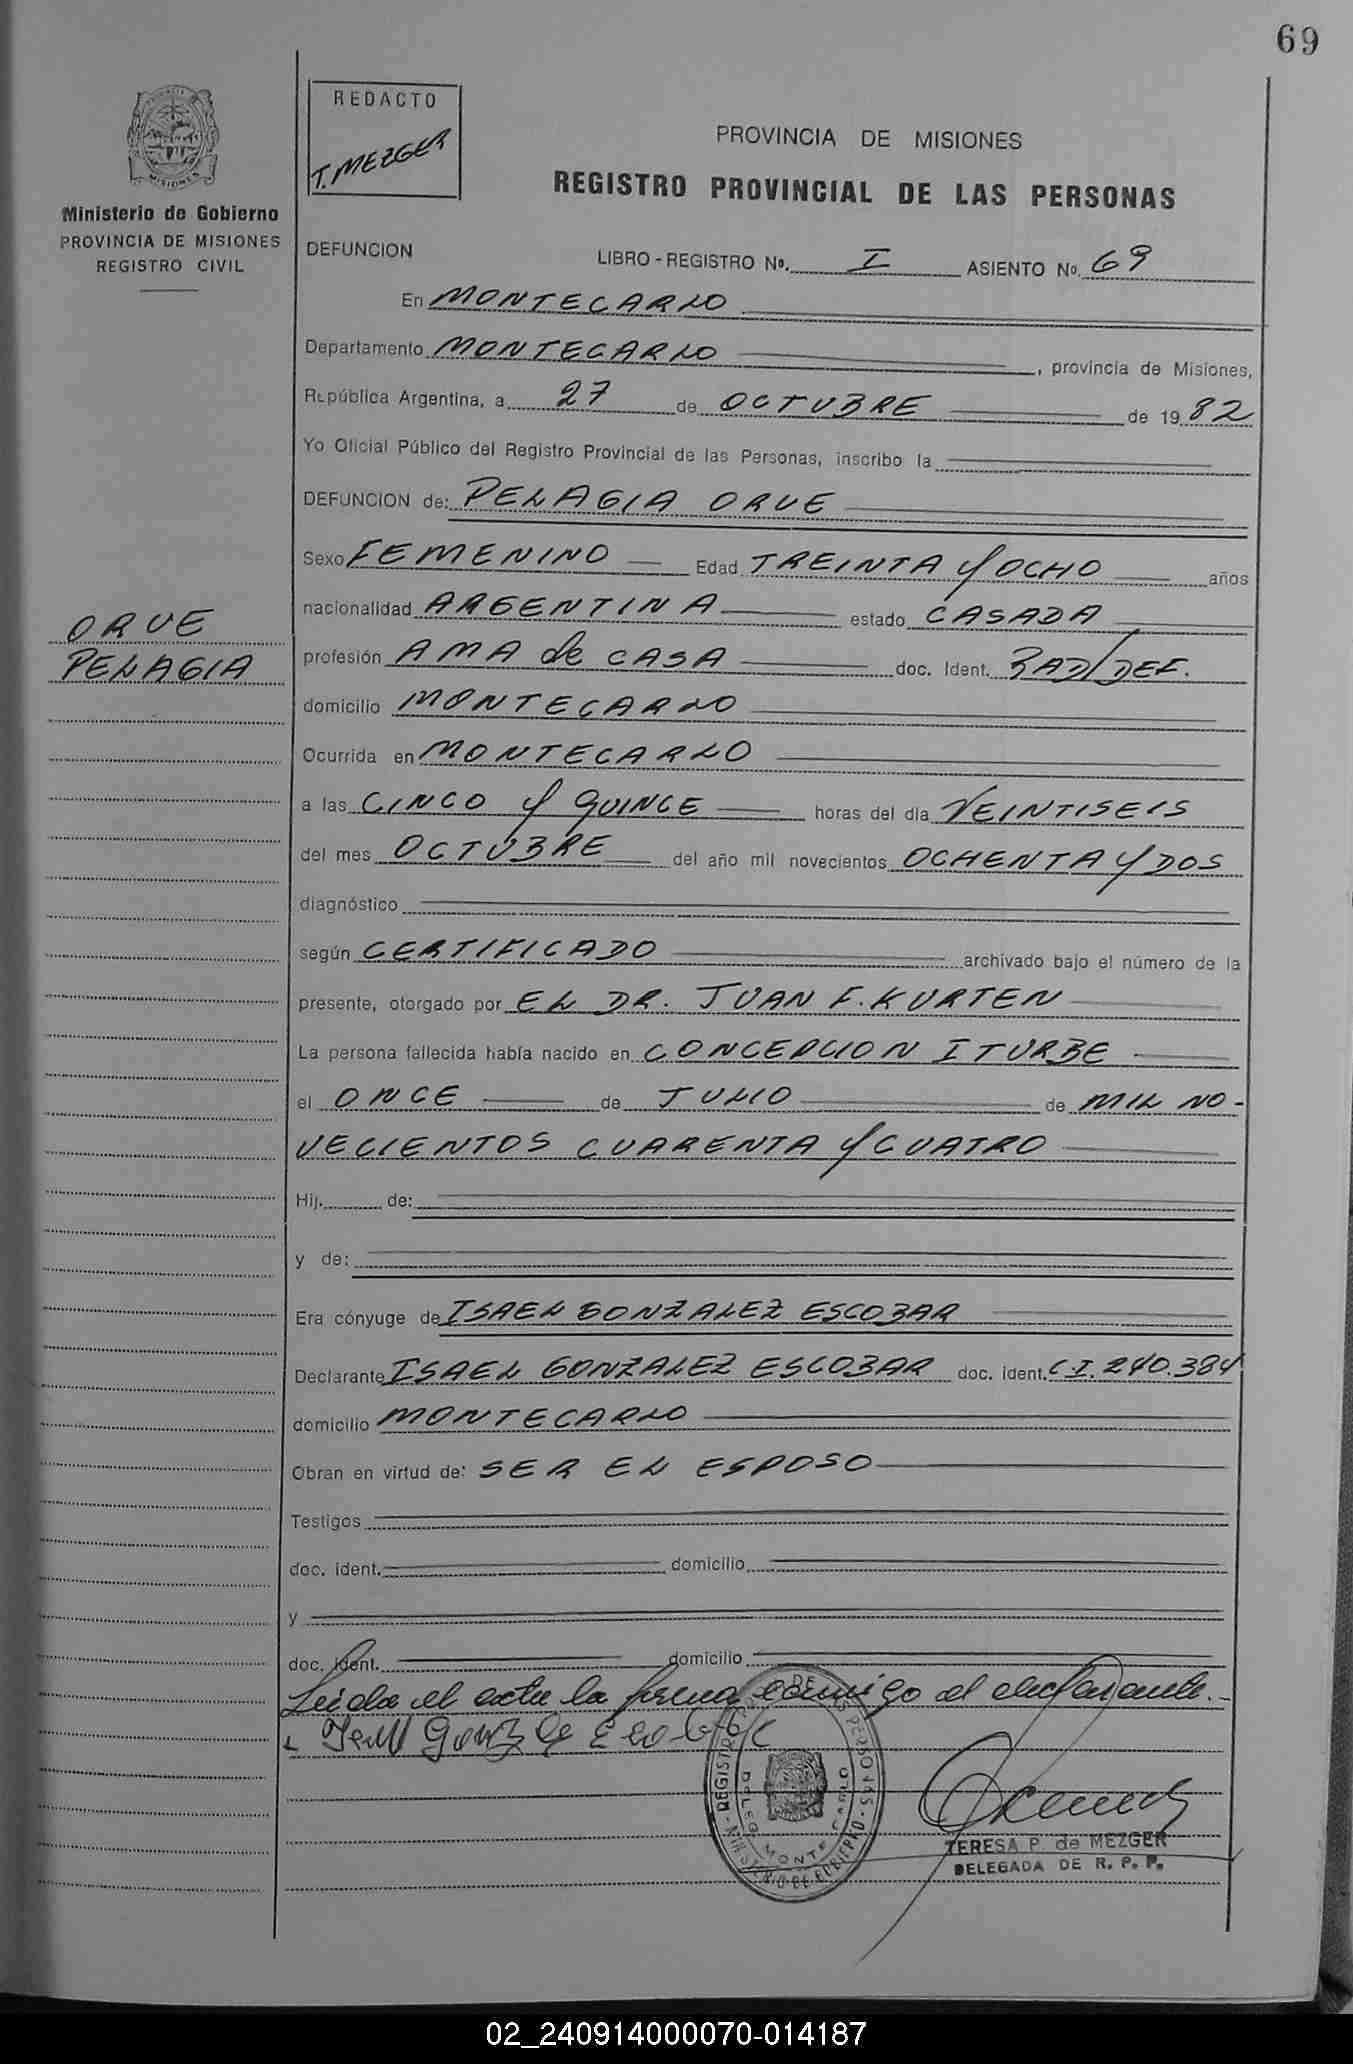 69
REDACTO
T. MEZGER
MISIONES
Ministerio de Gobierno
PROVINCIA DE MISIONES
REGISTRO CIVIL
PROVINCIA DE MISIONES
REGISTRO PROVINCIAL DE LAS PERSONAS
DEFUNCION LIBRO - REGISTRO Nº. I ASIENTO Nº. 69
En MONTECARLO
Departamento MONTECARLO, provincia de Misiones,
República Argentina, a 27 de OCTUBRE de 1982
Yo Oficial Público del Registro Provincial de las Personas, inscribo la
DEFUNCION de: PELAGIA ORUE
Sexo FEMENINO Edad TREINTA y OCHO años
ORUE
PELAGIA
nacionalidad ARGENTINA estado CASADA
profesión AMA de CASA doc. Ident. BAD/DEF.
domicilio MONTECARLO
Ocurrida en MONTECARLO
a las CINCO y QUINCE horas del día VEINTISEIS
del mes OCTUBRE del año mil novecientos OCHENTA y DOS
diagnóstico
según CERTIFICADO archivado bajo el número de la
presente, otorgado por EL DR. JUAN F. KURTEN
La persona fallecida había nacido en CONCEPCION ITURBE
el ONCE de JULIO de MIL NO-
VECIENTOS CUARENTA y CUATRO
Hij. de:
y de:
Era cónyuge de ISAEL GONZALEZ ESCOBAR
Declarante ISAEL GONZALEZ ESCOBAR doc. ident. C.I. 240.384
domicilio MONTECARLO
Obran en virtud de: SER EL ESPOSO
Testigos
doc. ident. domicilio
y
doc. ident. domicilio
Leída el acta la firma conmigo el declarante.-
REGISTRO DE LAS PERSONAS - MINISTERIO DE GOBIERNO -
DELEG. MONTE CARLO
TERESA P. de MEZGER
DELEGADA DE R. P. P.
02_240914000070-014187